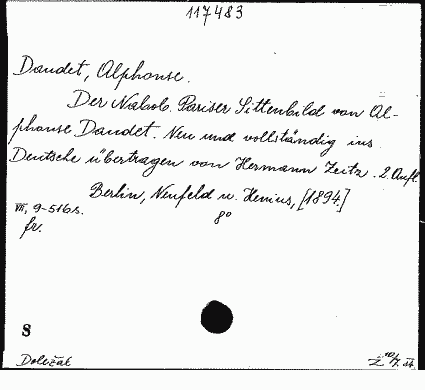 117483
Daudet, Alphonse.
Der Nabob. Pariser Sittenbild von Al-
phonse Daudet. Neu und vollständig ins
Deutsche übertragen von Hermann Zeitz. 2. Aufl.
Berlin, Neufeld u. Henius, [1894]
VII, 9-516 s. 8°
fr.
S
Doležak